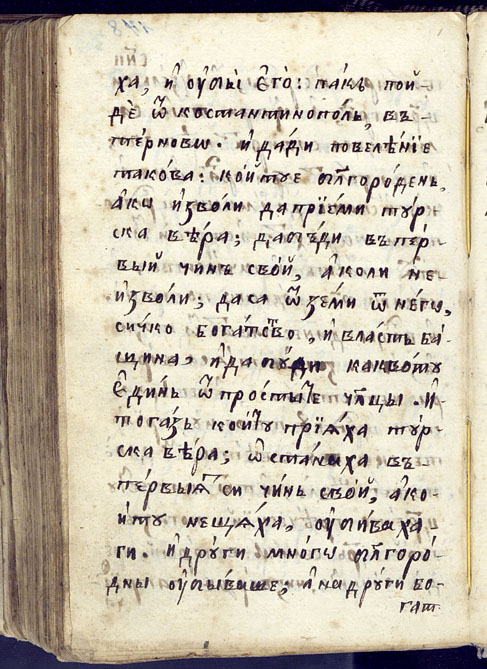 ха, и҆ ѹ҆би̑ є҆го̀: па́къ пой-
дѐ ѿ костантинопо́ль, въ-
те́рновѡ. и҆ да́ди повелѣ́нїе
тако́ва: ко́йтуе бл҃горо́денъ,
а҆ки и҆зво́ли да прїе́ми ту́р-
ска вѣ́ра; да бѫ́ди въ пе́р-
вый чинъ сво́й, а҆коли не
и҆зво́ли; да са ѿзе́ми ѿ не́гѡ,
си́чко бога́тство, и вла́сть ба́-
щина, и҆ да бѫ́ди какво́ту
є҆ди́нь ѿ просты́те чл҃цы. И҆
тога́зъ ко́йту прїѧ́ха ту́р-
ска вѣ́ра; ѡ҆ста́наха въ
пе́рвыѧ си чи́нь сво́й, а҆ко-
и҆ту не щѧ́ха, ѹ҆би́ваха
ги. и҆ дрꙋ́ги мно́гѡ бл҃горо́-
дны ѹ҆бы́ваше, а҆ на дрꙋ́ги бо-
гат